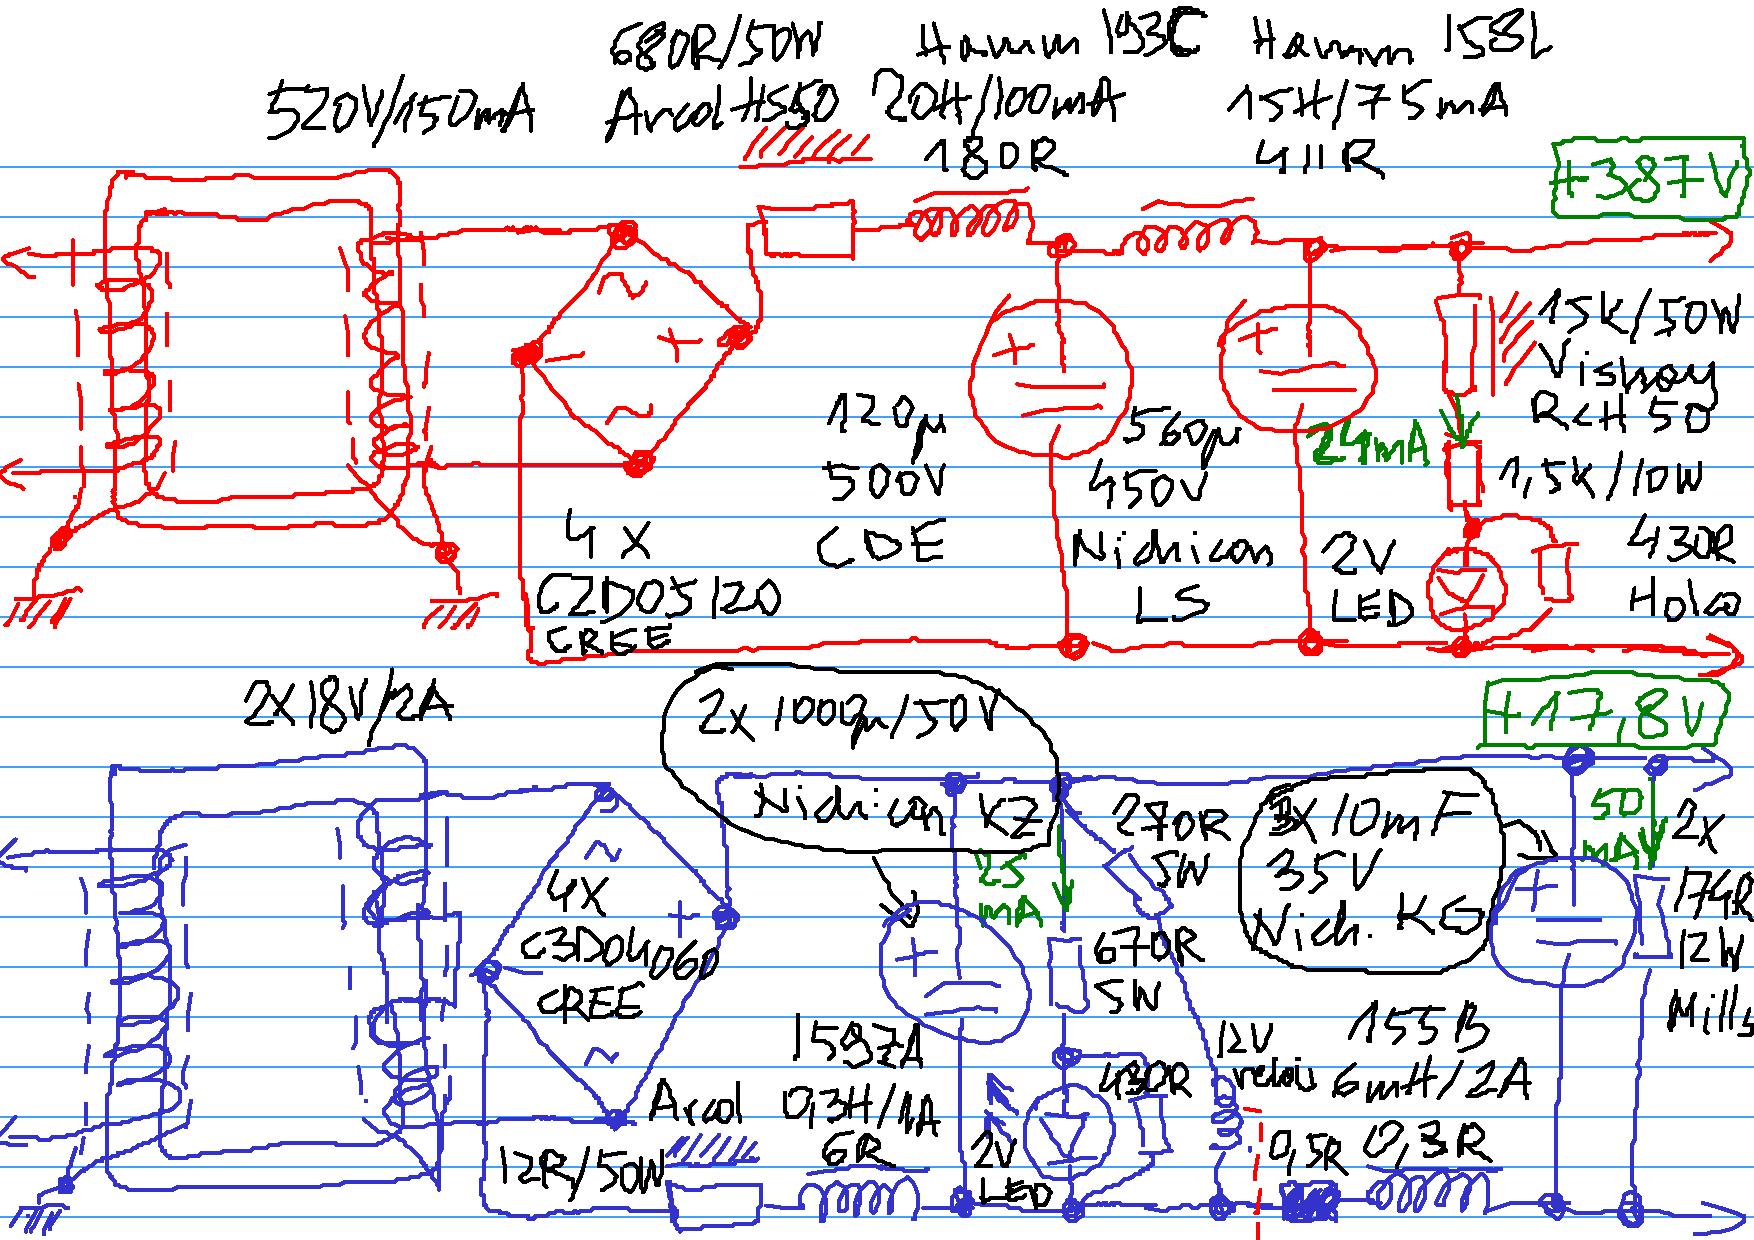 680R/50W Hamm 193C Hamm 158L
520V/150mA Arcol HS50 20H/100mA 15H/75mA
180R 411R
+387V
~
+
−
~
+
+
15K/50W
Vishay
RCH 50
24mA
1,5K/10W
120µ
500V
CDE
560µ
450V
Nichicon
LS
4 X
CZD05120
CREE
2V
LED
430R
Holco
2X18V/2A
2x 1000µ/50V
Nichicon KZ
+17,8V
270R
5W
3X10mF
35V
Nich. KG
50
mA
2x
174R
12W
Mills
25
mA
~
4X
C3D04060
CREE
+
−
~
+
+
670R
5W
1597A
0,3H/1A
6R
Arcol
12R/50W
430R
2V
LED
12V
relais
155B
6mH/2A
0,5R 0,3R